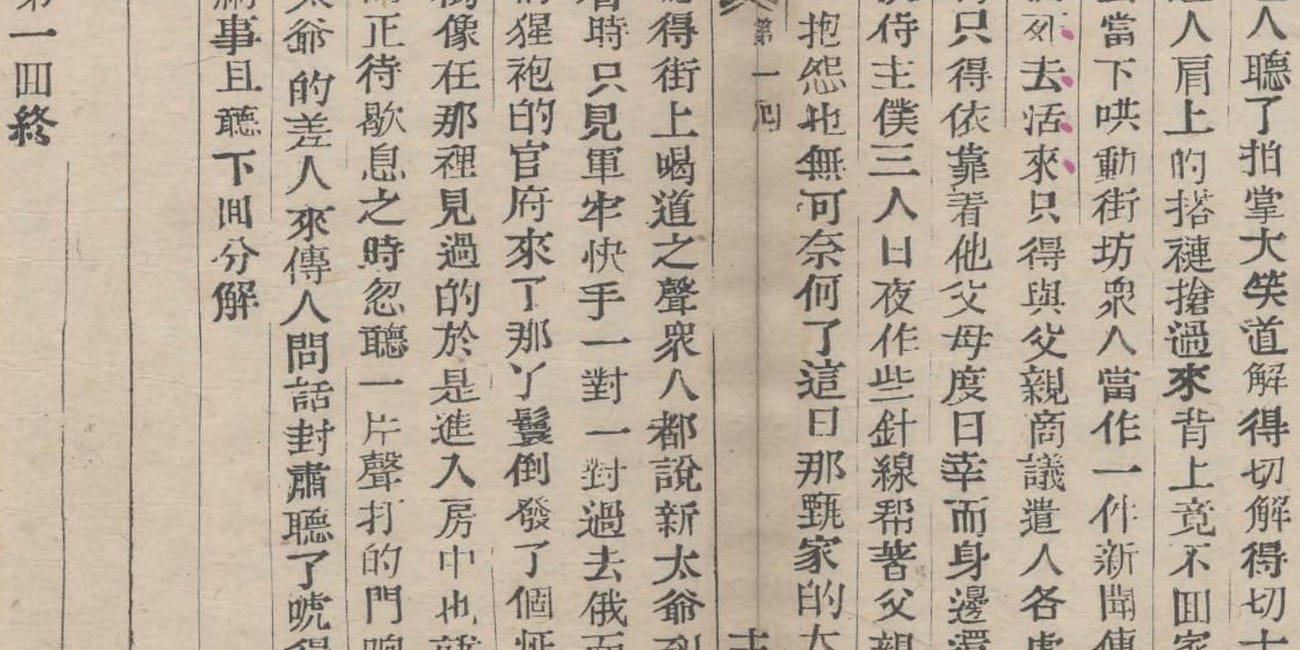 人聽了拍掌大笑道解得切解得切士
人肩上的搭褳搶過來背上竟不回家
當下哄動街坊衆人當作一件新聞傳
死去活來只得與父親商議遣人各處
只得依靠着他父母度日幸而身邊還
侍主僕三人日夜作些針線帮著父親
抱怨也無可奈何了這日那甄家的大
第一回
得街上喝道之聲衆人都說新太爺到
時只見軍牢快手一對一對過去俄而
猩袍的官府來了那丫鬟倒發了個怔
像在那裡見過的於是進入房中也就
正待歇息之時忽聽一片聲打的門响
太爺的差人來傳人問話封肅聽了唬得
事且聽下回分解
第一回終